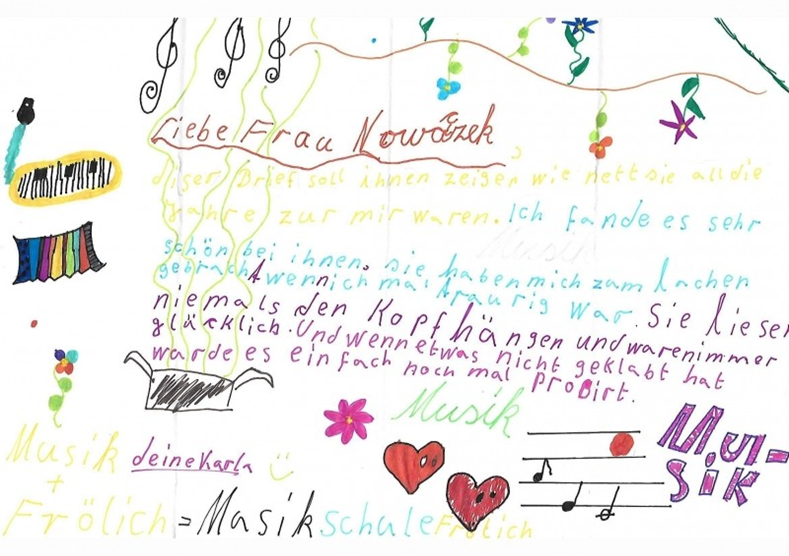 Liebe Frau Nowaczek,
diser Brief soll ihnen zeigen wie nett sie all die
Jahre zur mir waren. Ich fande es sehr
schön bei ihnen. sie haben mich zum lachen
gebracht wenn ich mal traurig war. Sie liesen
niemals den Kopf hängen und waren immer
glücklich. Und wenn etwas nicht geklabt hat
warde es einfach noch mal probirt.
Musik
Musik
deine Karla
+
Frölich = Musikschule Frölich
Mu-
sik